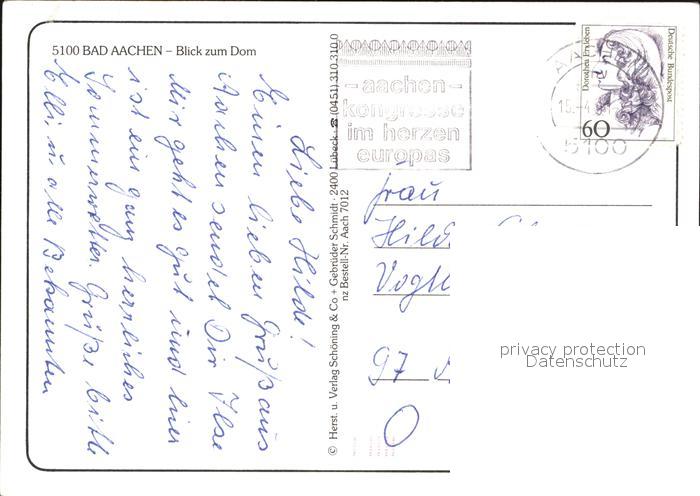 5100 BAD AACHEN – Blick zum Dom
Liebe Hilde!
Einen lieben Gruß aus
Aachen sendet Dir Ilse
Mir geht es gut und hier
ist ein ganz herrliches
Sommerwetter. Grüße bitte
Elli u. alle Bekannten
© Herst. u. Verlag Schöning & Co + Gebrüder Schmidt · 2400 Lübeck · ☎ (0451) 310 310 0
nz Bestell-Nr. Aach 7012
– aachen –
kongresse
im herzen
europas
5100
Dorothea Erxleben
Deutsche Bundespost
60
Frau
Hild
97
privacy protection
Datenschutz